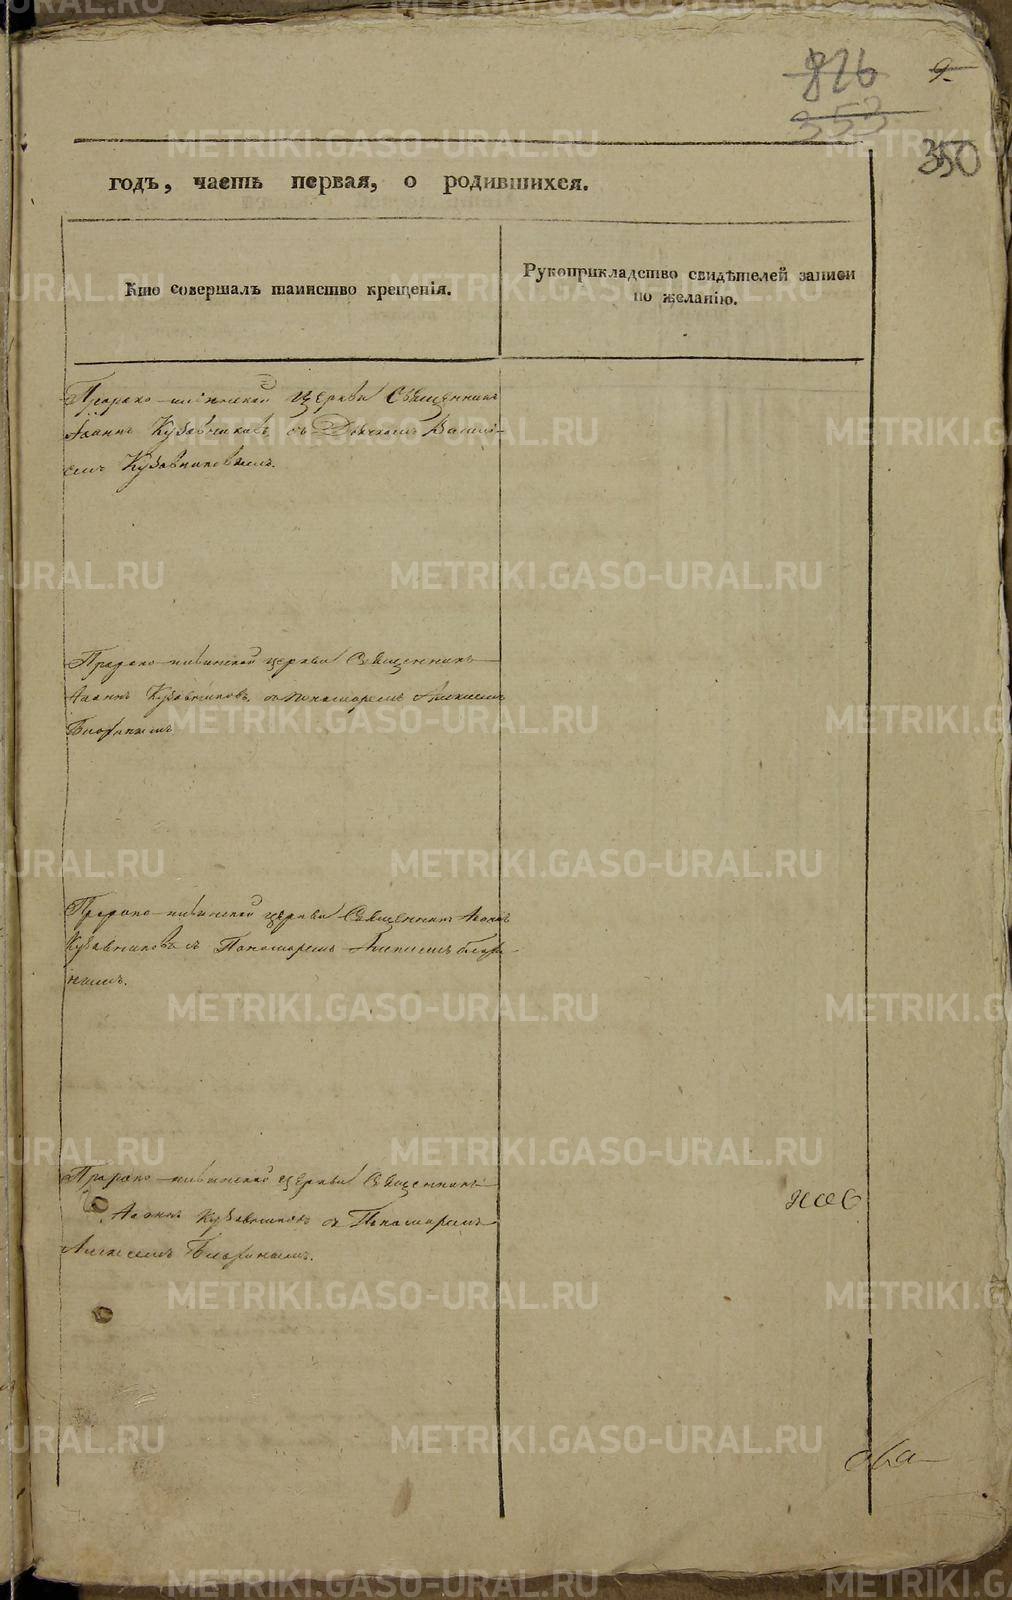 816 9.
353
350
годъ, часть первая, о родившихся.
Кто совершалъ таинство крещенія.
Рукоприкладство свидѣтелей записи
по желанію.
Пророко-ильинской церкви Священникъ
Іоаннъ Кузовниковъ съ Дьячкомъ Васильемъ
Кузовниковымъ.
Пророко-ильинской церкви Священникъ
Іоаннъ Кузовниковъ, съ пономаремъ Алексеемъ
Пророко-ильинской церкви Священникъ Іоаннъ
Кузовниковъ съ Пономаремъ Алексеемъ
Пророко-ильинской церкви Священникъ
Іоаннъ Кузовниковъ съ Пономаремъ
Алексеемъ
METRIKI.GASO-URAL.RU